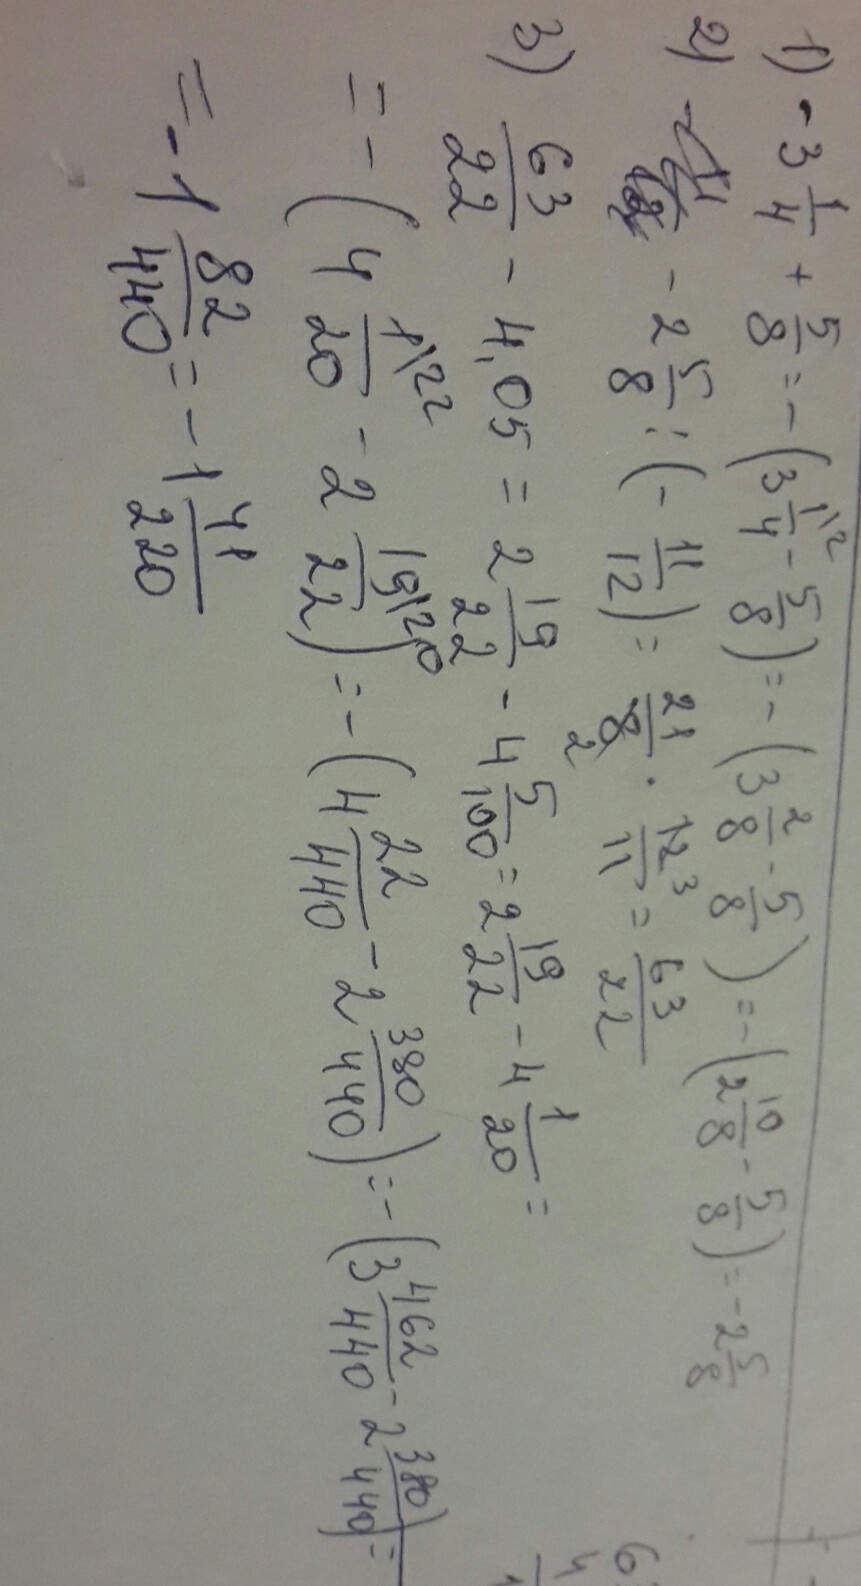 1) -3 1/4 + 5/8 = -(3 1\2/4 - 5/8) = -(3 2/8 - 5/8) = -(2 10/8 - 5/8) = -2 5/8
2) -2 5/8 : (-11/12) = 21/8 2 · 12 3/11 = 63/22
3) 63/22 - 4,05 = 2 19/22 - 4 5/100 = 2 19/22 - 4 1/20 =
= -(4 1\22/20 - 2 19\20/22) = -(4 22/440 - 2 380/440) = -(3 462/440 - 2 380/440) =
= -1 82/440 = -1 41/220